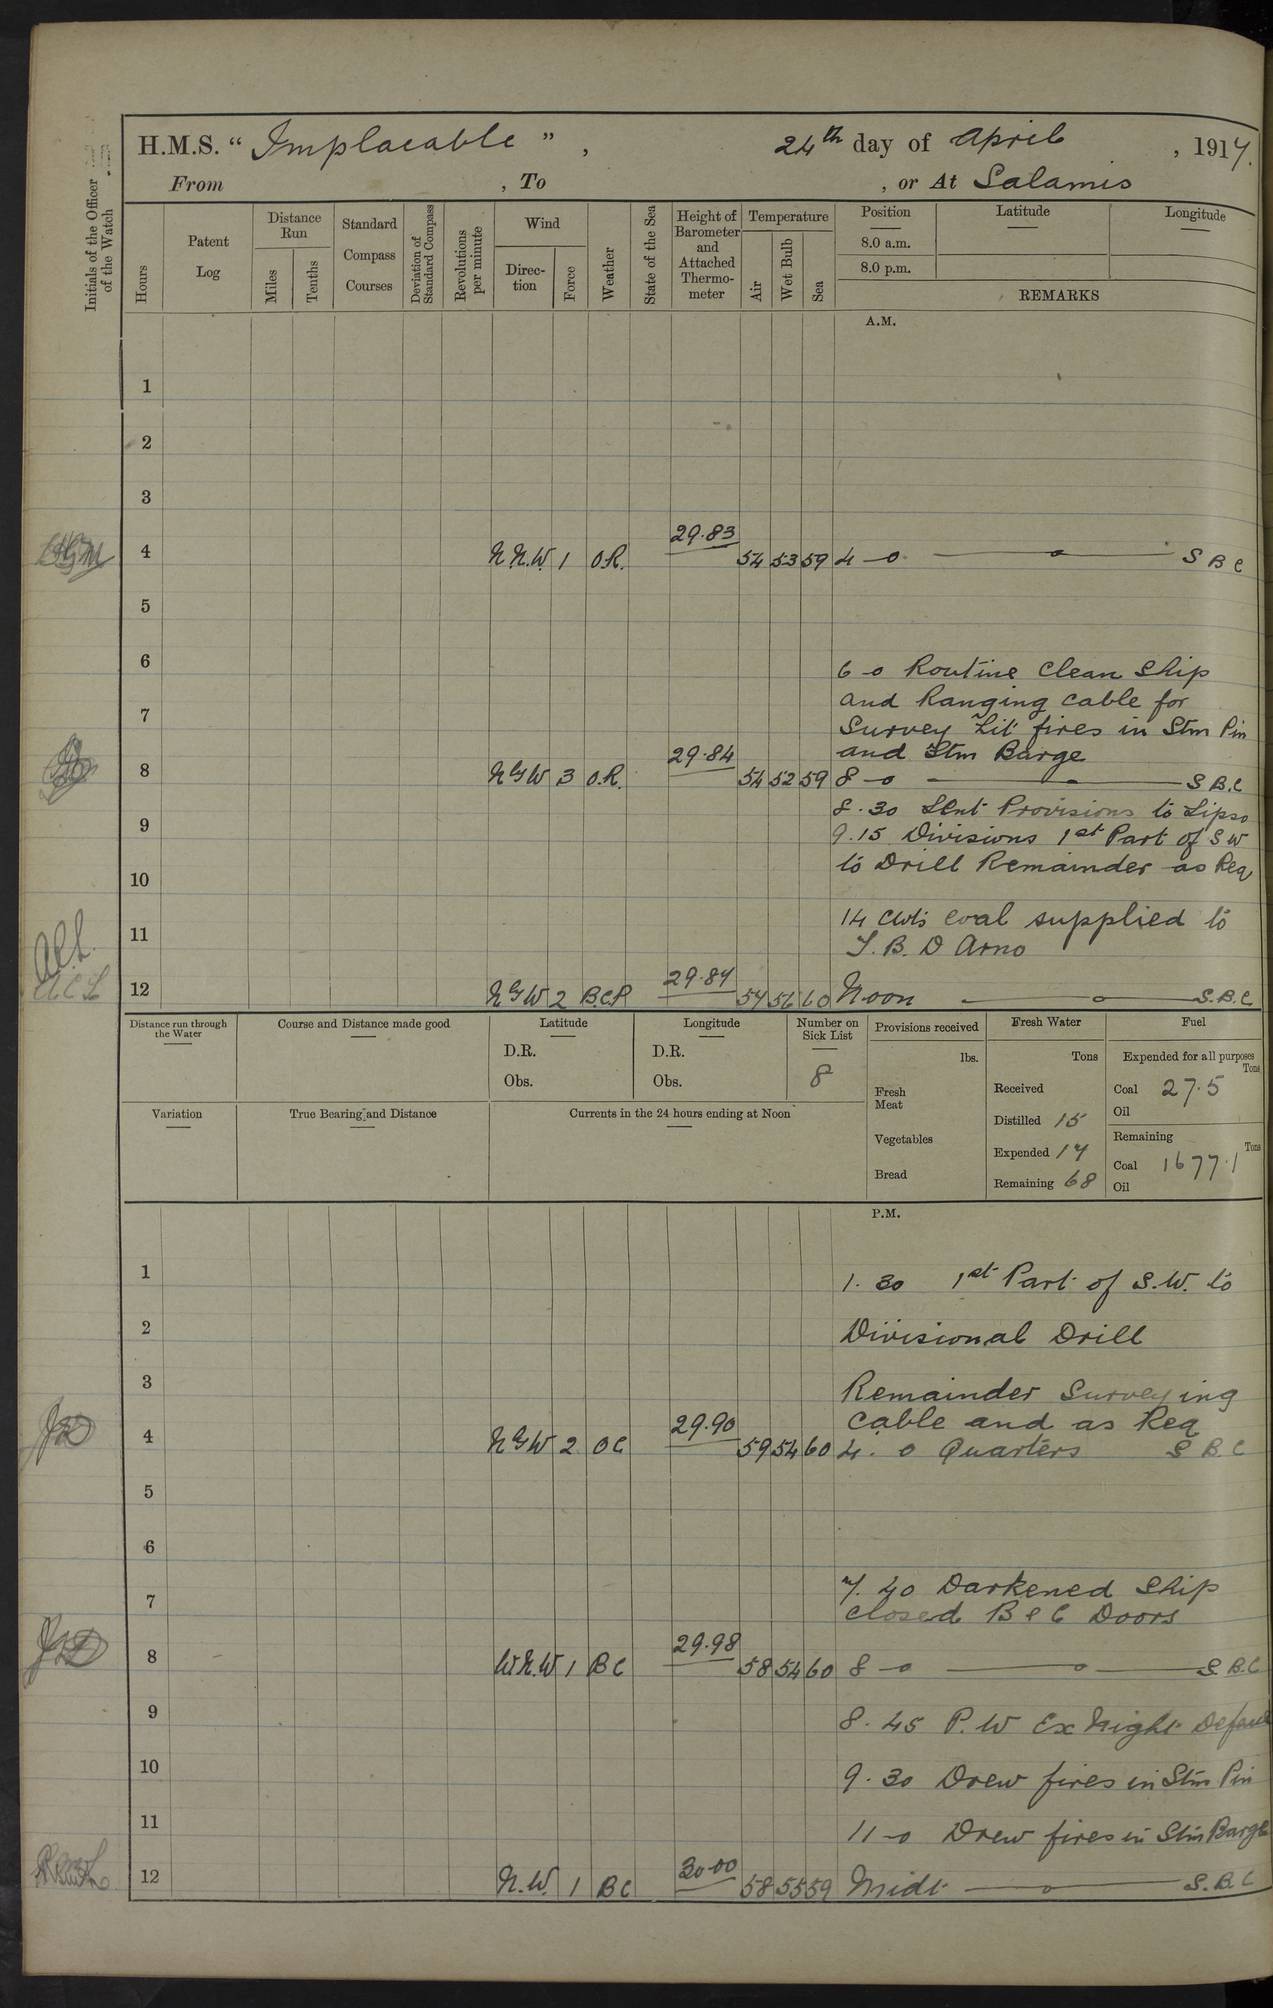 H.M.S. “ Implacable ” , 24th day of April , 1917.
From , To , or At Salamis
Initials of the Officer of the Watch
Hours
Patent Log
Distance Run
Miles
Tenths
Standard Compass Courses
Deviation of Standard Compass
Revolutions per minute
Wind
Direction
Force
Weather
State of the Sea
Height of Barometer and Attached Thermometer
Temperature
Air
Wet Bulb
Sea
Position Latitude Longitude
8.0 a.m.
8.0 p.m.
REMARKS
A.M.
1
2
3
4 N.N.W. 1 O.R. 29.83 54 53 59 4 - 0 S B C
5
6 6 - 0 Routine Clean Ship
and Ranging Cable for
7
Survey Lit fires in Stm Pin
and Stm Barge
8 N b W 3 O.R. 29.84 54 52 59 8 - 0 S B.C
8.30 Sent Provisions to Lipso
9 9.15 Divisions 1st Part of S W
to Drill Remainder as Req
10
14 cwts coal supplied to
11 T.B.D Arno
12 N b W 2 B.C.R 29.87 57 56 60 Noon S.B.C
A C L
Distance run through the Water
Course and Distance made good
Latitude
D.R.
Obs.
Longitude
D.R.
Obs.
Number on Sick List
8
Provisions received
lbs.
Fresh Meat
Vegetables
Bread
Fresh Water
Tons
Received
Distilled 15
Expended 17
Remaining 68
Fuel
Expended for all purposes
Tons
Coal 27.5
Oil
Remaining
Tons
Coal 1677.1
Oil
Variation
True Bearing and Distance
Currents in the 24 hours ending at Noon
P.M.
1 1.30 1st Part of S.W. to
2 Divisional Drill
3 Remainder Surveying
Cable and as Req
4 N b W 2 O C 29.90 59 54 60 4.0 Quarters S B.C
5
6
7.40 Darkened Ship
7 Closed B & C Doors
8 W.N.W 1 B C 29.98 58 54 60 8 - 0 S.B.C
9 8.45 P.W Ex Night Defence
10 9.30 Drew fires in Stm Pin
11 11 - 0 Drew fires in Stm Barge
12 N.W. 1 B C 30.00 58 55 59 Midt S.B.C